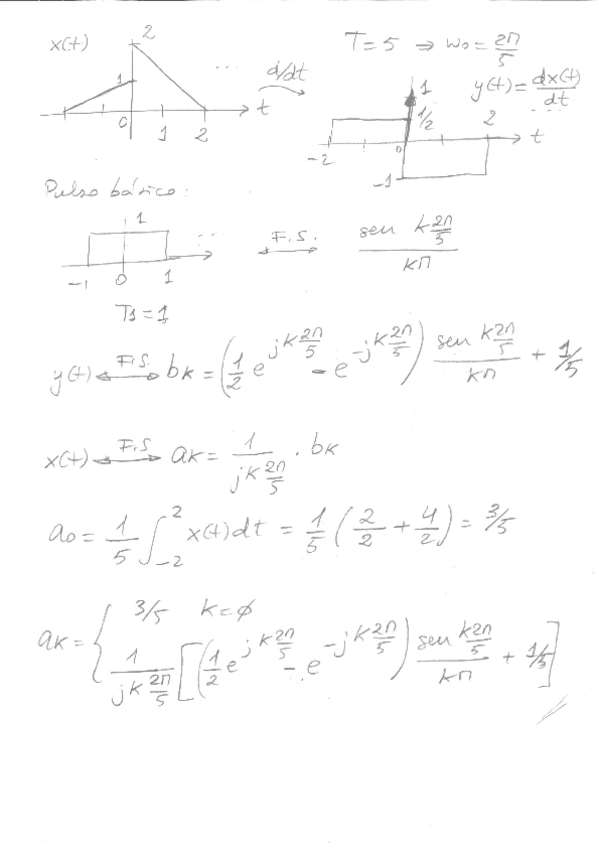 x(t) 2 T = 5 ⇒ ω₀ = 2π/5
1 ... d/dt 1 y(t) = dx(t)/dt
0 1 2 t 1/2 2 ...
-2 0 t
-1
Pulso básico:
1 ... F.S. sen k 2π/5 / kπ
-1 0 1
T1 = 1
y(t) ⟷ F.S. bk = (1/2 e^{jk 2π/5} - e^{-jk 2π/5}) sen k 2π/5 / kπ + 1/5
x(t) ⟷ F.S ak = 1/(jk 2π/5) · bk
a0 = 1/5 ∫_{-2}^{2} x(t) dt = 1/5 (2/2 + 4/2) = 3/5
ak = { 3/5 k = ø
1/(jk 2π/5) [(1/2 e^{jk 2π/5} - e^{-jk 2π/5}) sen k 2π/5 / kπ + 1/5]